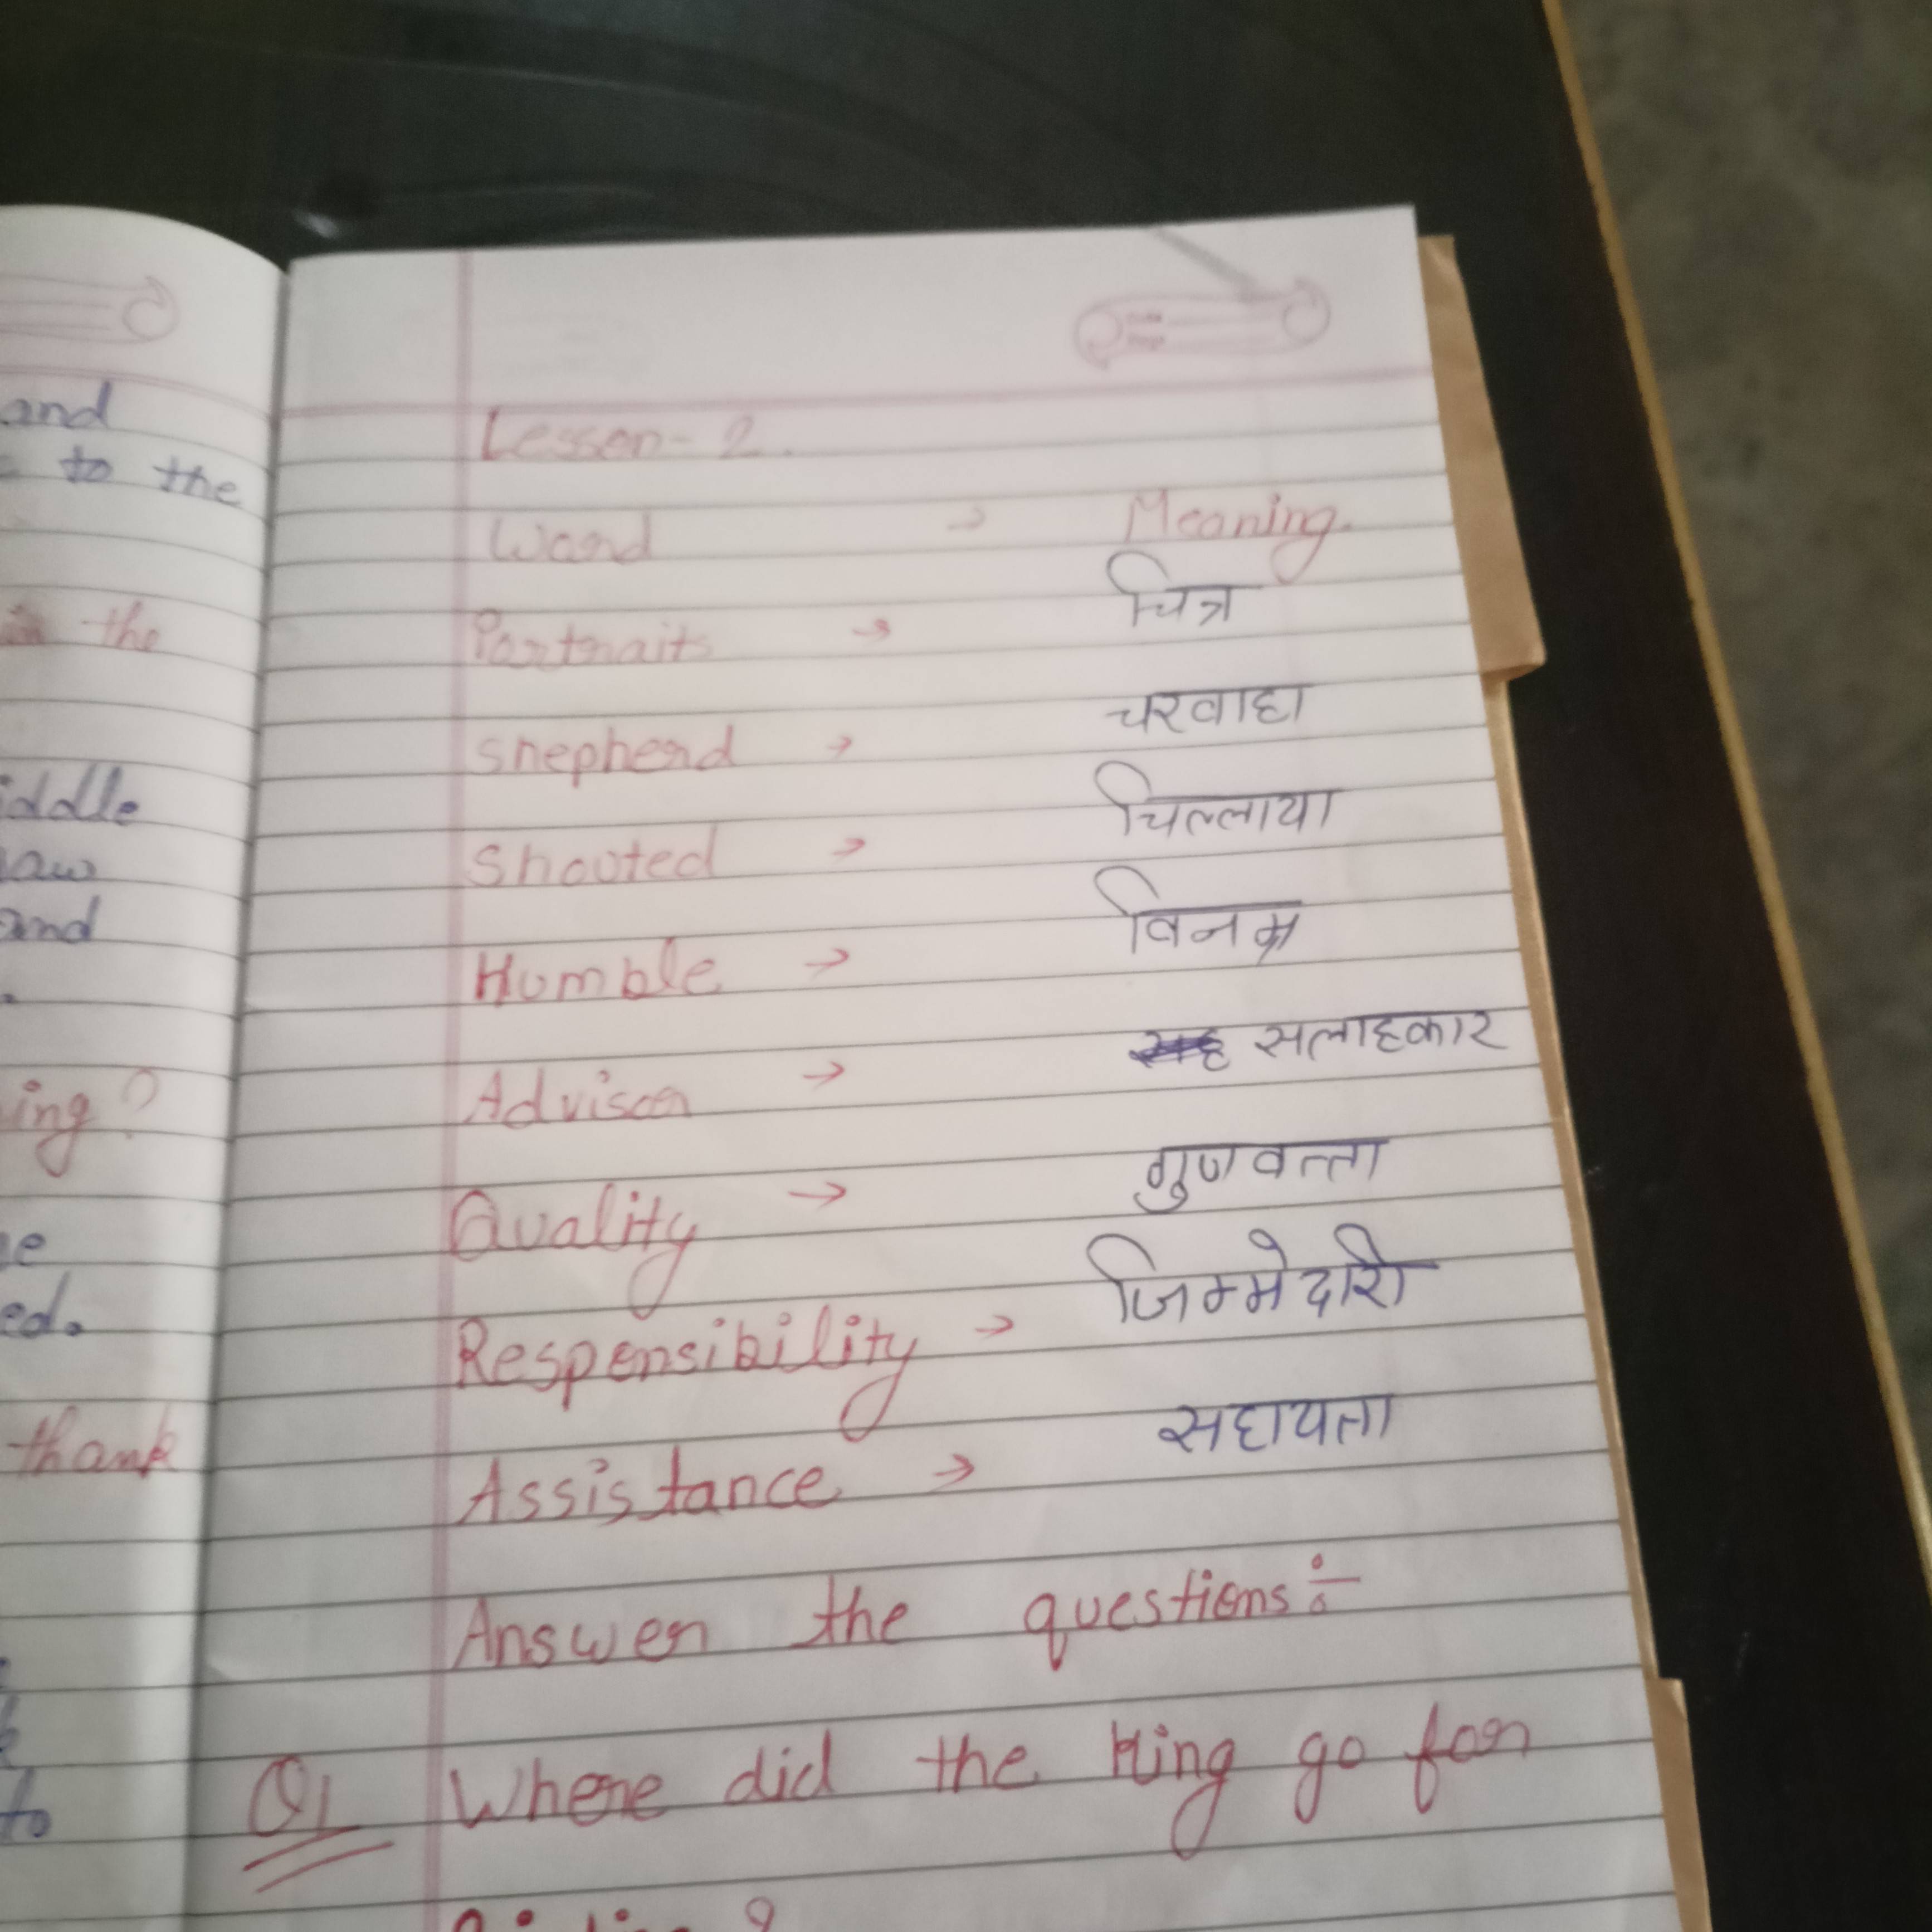 and
to the
the
iddle
aw
and
ing?
e
ed.
thank
to
Lesson - 2.
Word → Meaning.
Portraits → चित्र
Shepherd → चरवाहा
Shouted → चिल्लाया
Humble → विनम्र
Advisor → सलाहकार
Quality → गुणवत्ता
Responsibility → जिम्मेदारी
Assistance → सहायता
Answer the questions :-
Q1 Where did the King go for